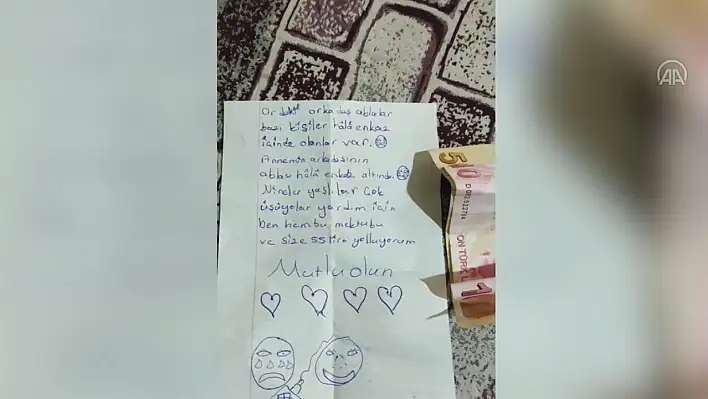 arkadaş ablalar
bazı kişiler hâlâ enkaz
içinde olanlar var.
Annemin arkadaşının
ablası hâlâ enkaz altında.
Nineler yaşlılar çok
üşüyolar yardım için
ben hem bu mektubu
ve size 55 lira yolluyorum
Mutlu olun
50
10
D 012 522714
ON TÜRK L
1
AA